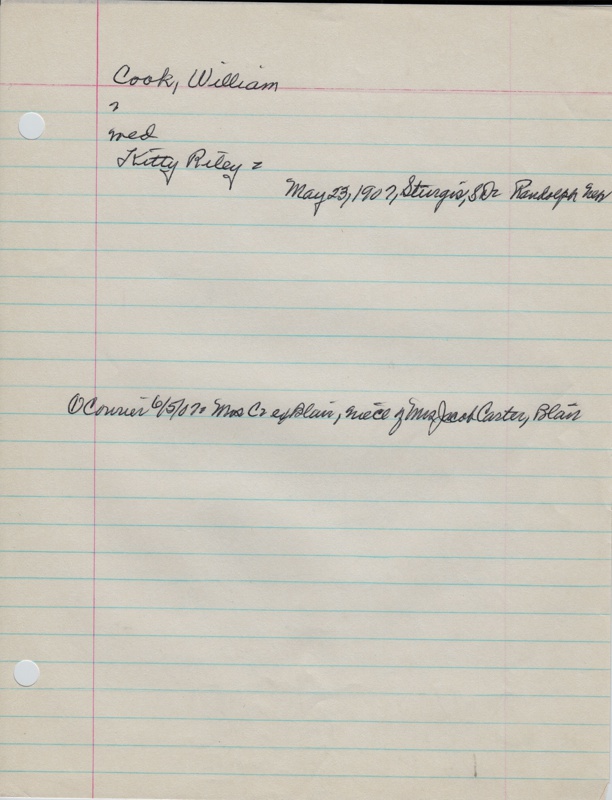 Cook, William
med
Kitty Riley =
May 23, 1907, Sturgis, S D= Randolph Neb
① Courier 6/5/07= Mrs C= of Blair, niece of Mrs Jacob Carter, Blair